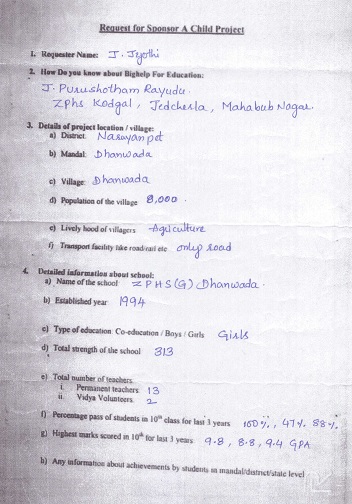 Request for Sponsor A Child Project
1. Requester Name: J. Jyothi
2. How Do you know about Bighelp For Education:
J. Purushotham Rayudu.
ZPHS Kodgal, Jedcherla, Mahabub Nagar.
3. Details of project location / village:
a) District. Narayanpet
b) Mandal: Dhanwada
c) Village: Dhanwada
d) Population of the village 8,000.
e) Lively hood of villagers Agriculture
f) Transport facility like road/rail etc only road
4. Detailed information about school:
a) Name of the school ZPHS(G) Dhanwada.
b) Established year 1994
c) Type of education: Co-education / Boys / Girls Girls
d) Total strength of the school 313
e) Total number of teachers.
i. Permanent teachers 13
ii. Vidya Volunteers 2
f) Percentage pass of students in 10th class for last 3 years 100%, 47% 88%
g) Highest marks scored in 10th for last 3 years 9.8, 8.8, 9.4 GPA
h) Any information about achievements by students in mandal/district/state level